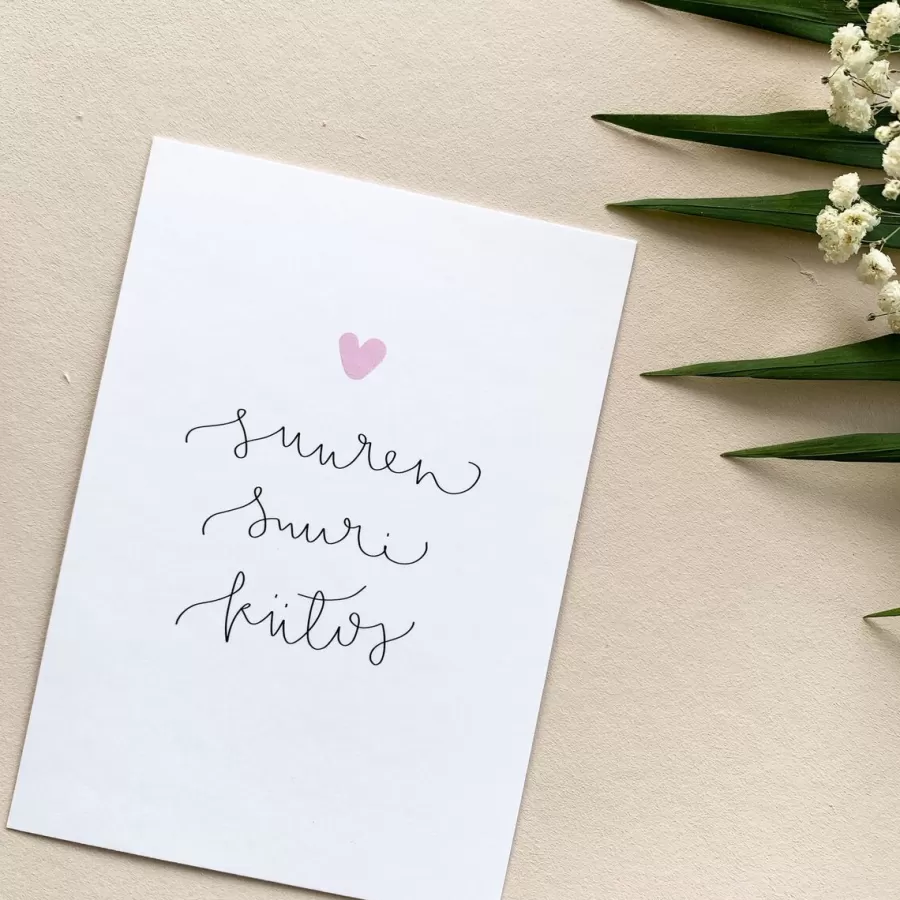 suuren
suuri
kiitos